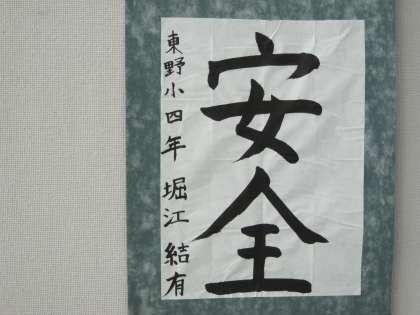 安全
東野小四年 堀江 結有